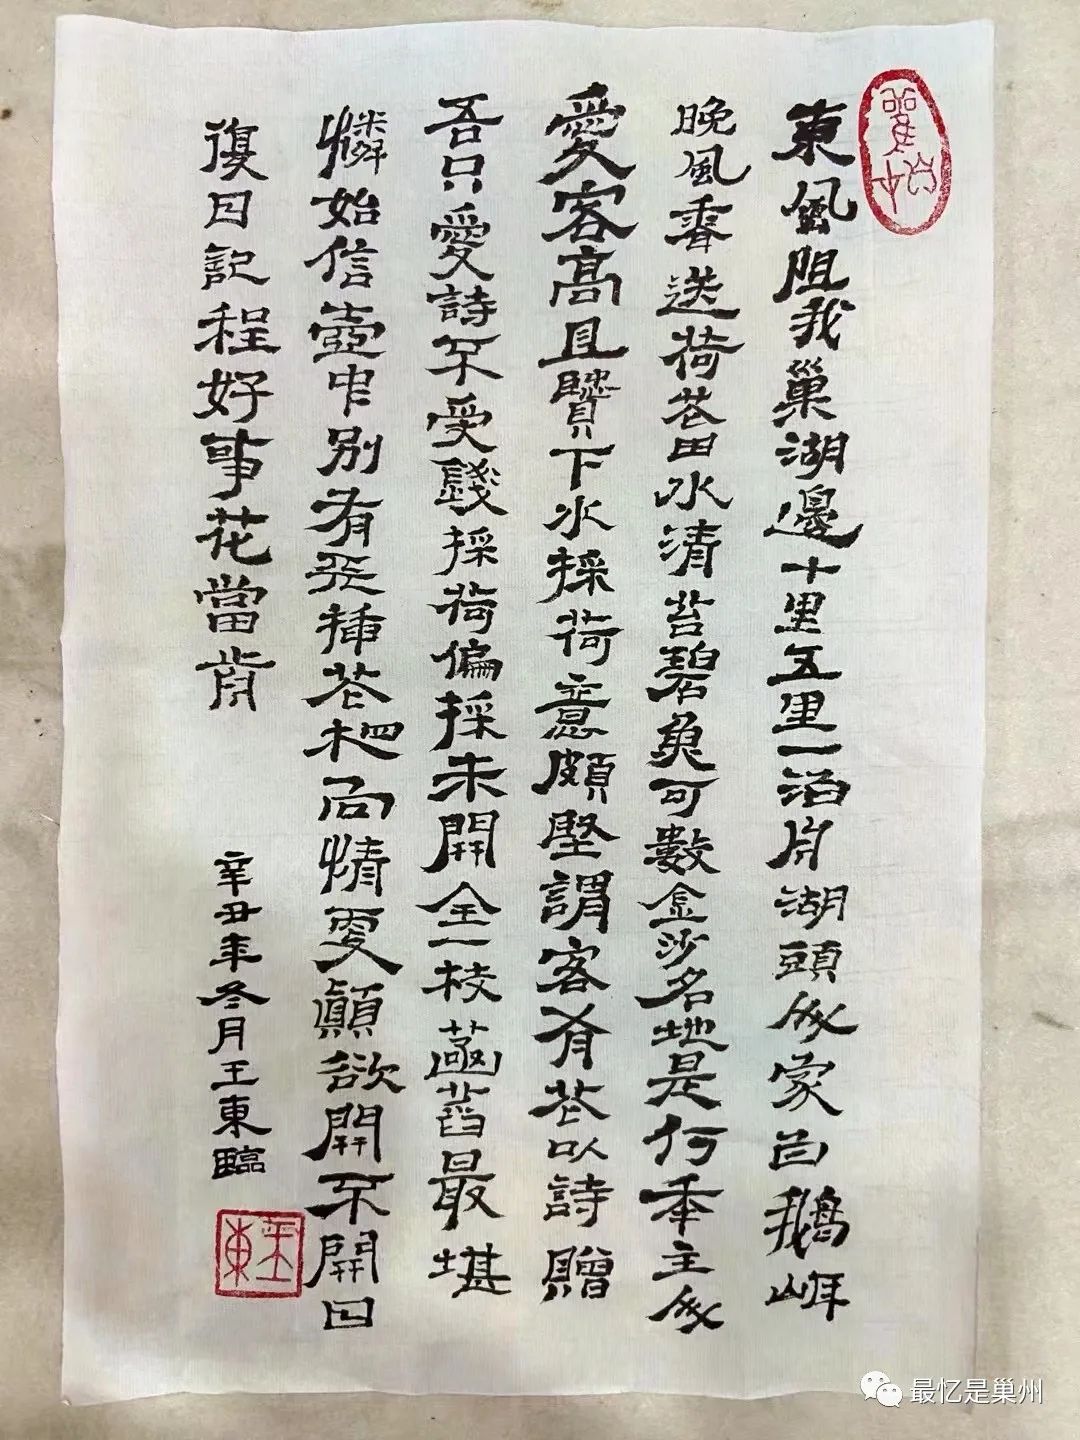 東風阻我巢湖邊十里五里一泊舟湖頭人家白鵝
晚風香送荷花田水清苔碧魚可數金沙名地是何年主人
愛客高且賢下水採荷意頗堅謂客有花以詩贈
吾只愛詩不受錢採荷偏採未開全一枝菡萏最堪
憐始信壺中別有天插花把酒情更顛欲開不開日
復日記程好事花當肯
辛丑年冬月王東臨
王東
最忆是巢州